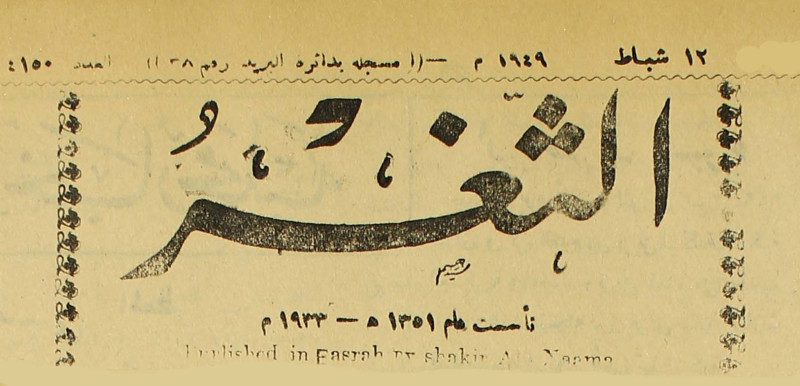 ١٢ شباط ١٩٤٩ م —(( مسجله بدائرة البريد رقم ٣٨ )) العدد ٤١٥٠
الثغر
رحيم
تأسست عام ١٣٥١ ه — ١٩٣٣ م
Published in Basrah by shakir Al - Naama